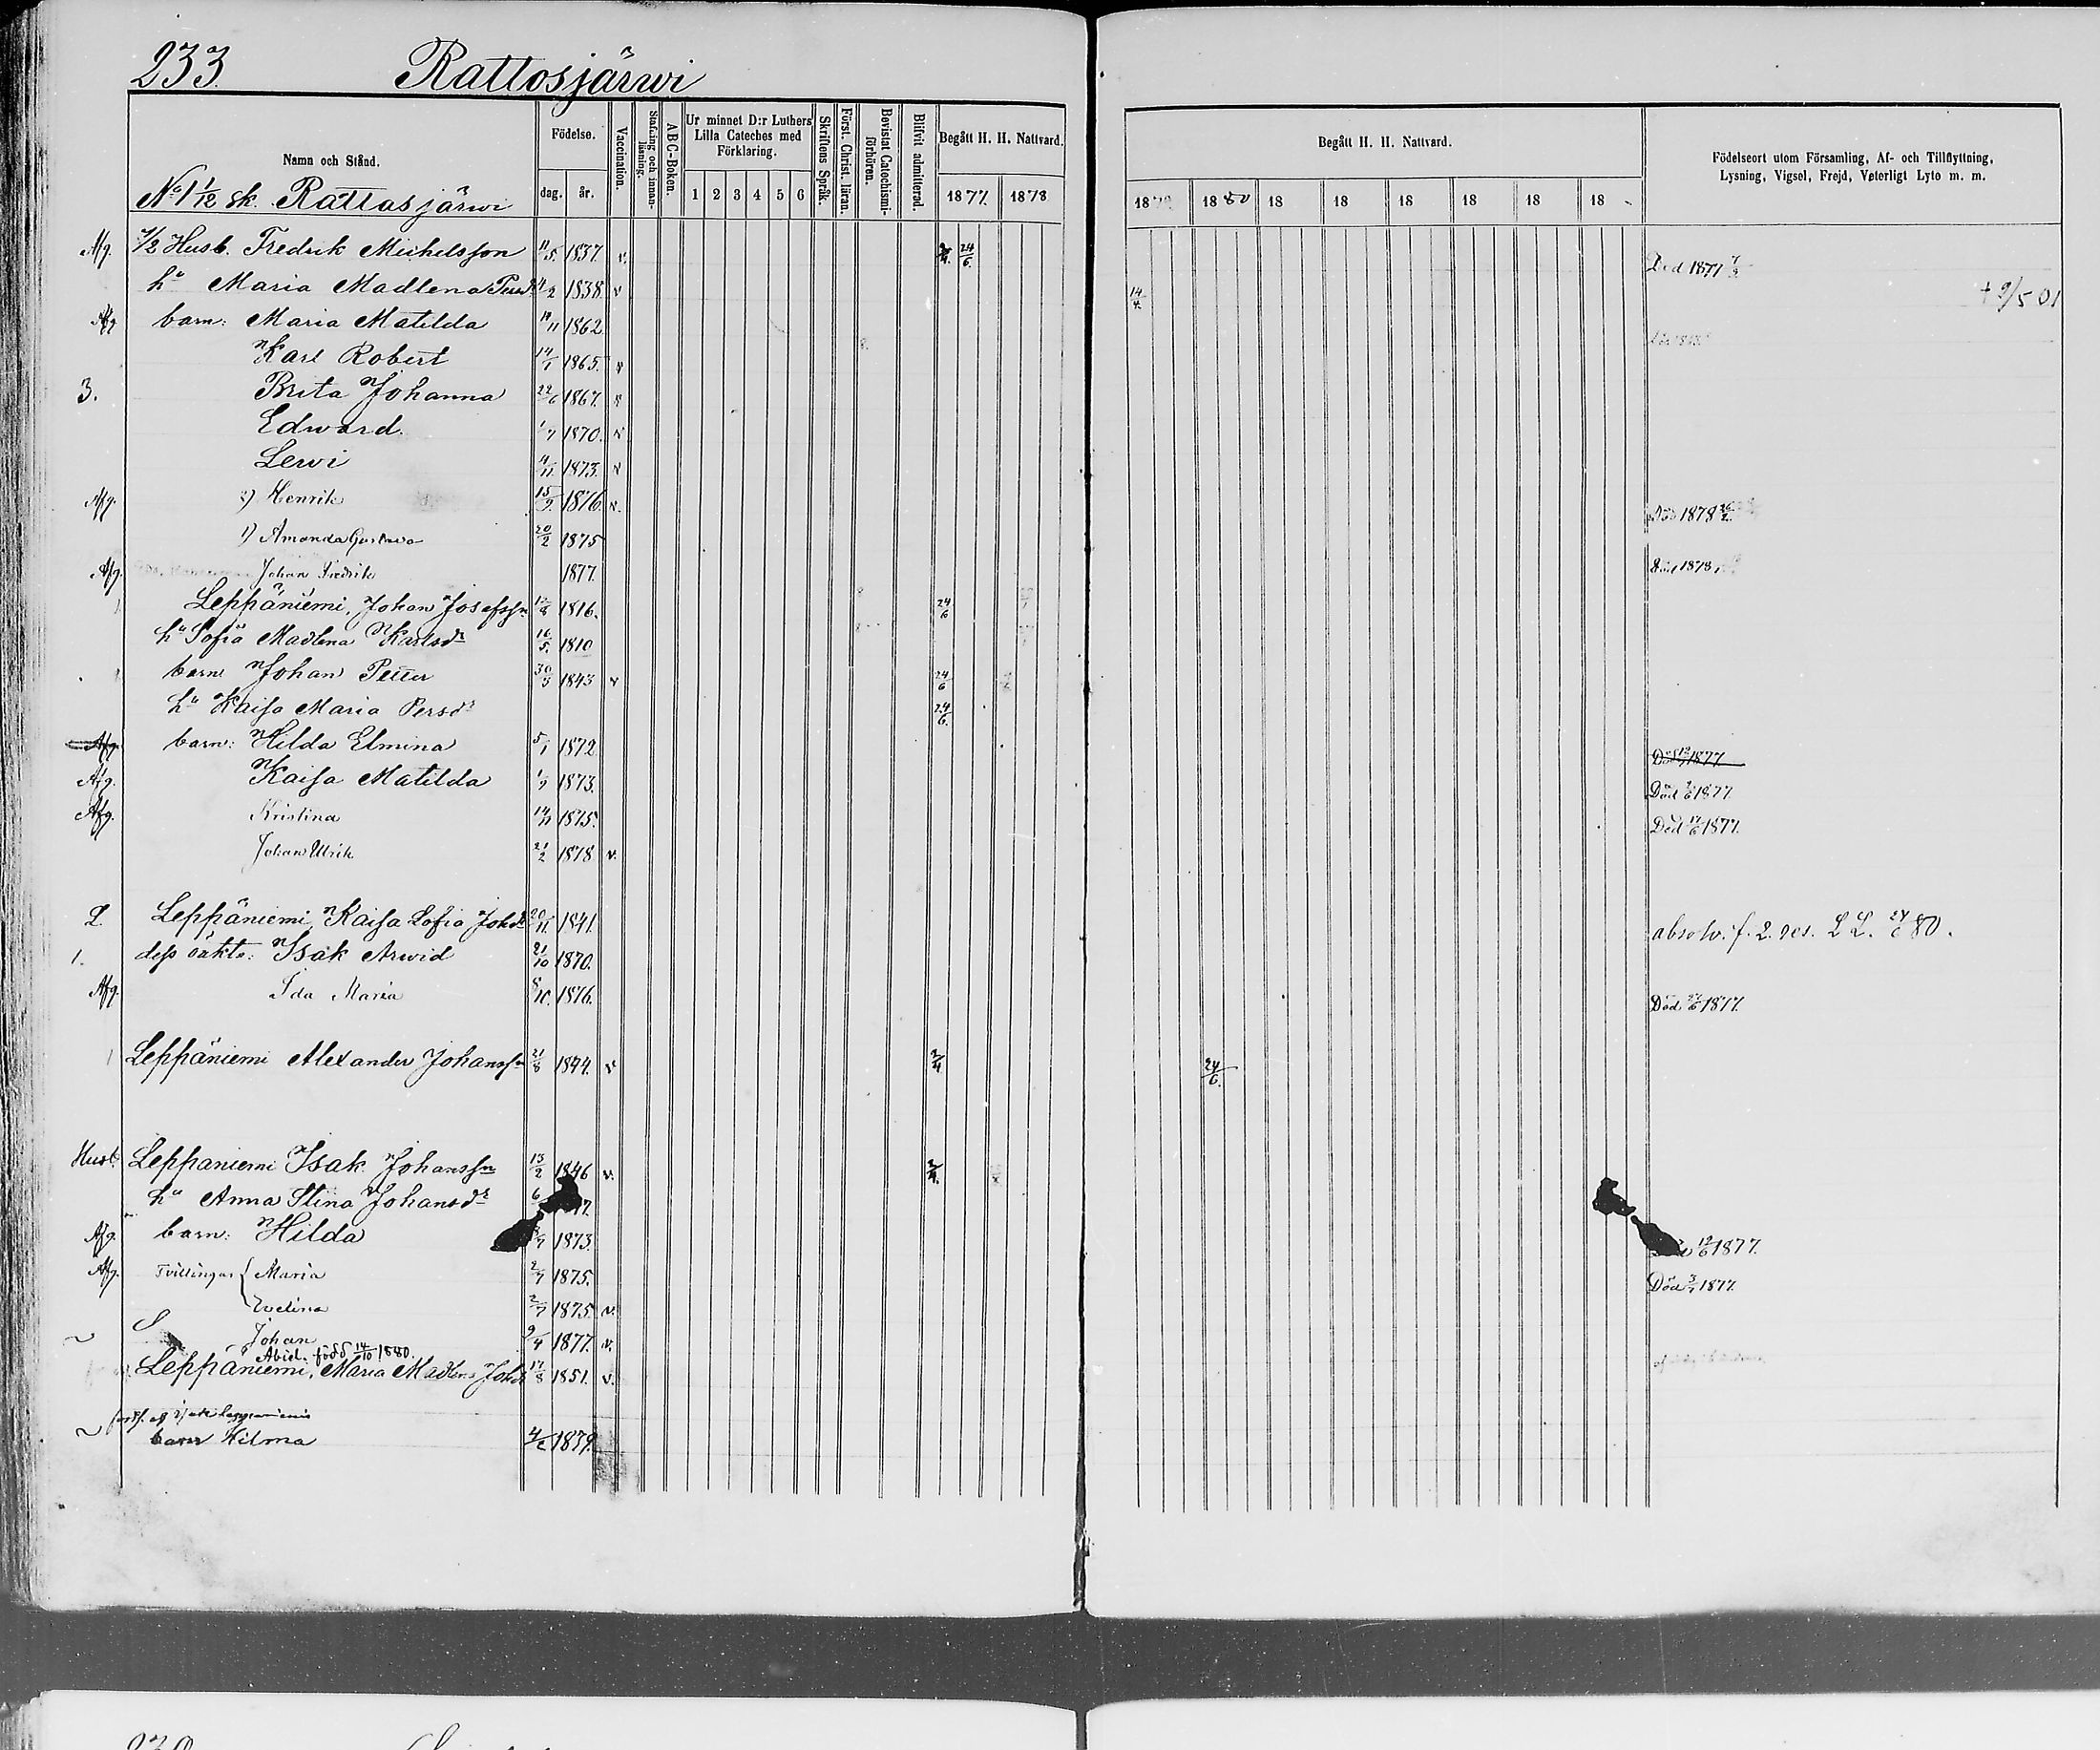 233. Rattosjärwi
Namn och Stånd. Födelse. dag. år. Vaccination. Stafning och innanläsning. A B C-Boken. Ur minnet D:r Luthers Lilla Cateches med Förklaring. 1 2 3 4 5 6 Skriftens Språk. Först. Christ. läran. Bevistat Catechismiförhören. Blifvit admitterad. Begått H. H. Nattvard. 1877. 1878
Begått H. H. Nattvard. 18 1880 18 18 18 18 18 18 Födelseort utom Församling, Af- och Tillflyttning, Lysning, Vigsel, Frejd, Veterligt Lyte m. m.
No 1 1/12 sk. Rattasjärwi
Afg. 1/2 Husb. Fredrik Michelsson 11/5. 1837. v. 24/6. Död 1877
hu Maria Madlena Persdr 1838. v 14/4 + 9/5 01
Afg barn: Maria Matilda 1862
Karl Robert 14/1 1865. v
3. Brita Johanna 22/6 1867. v
Edward. 1/7 1870. v
Lewi 4/11 1873. v
Afg. 2) Henrik 15/9. 1876. v. Död 1878 26/2.
1) Amanda Gustava 20/2 1875
Afg. Johan Fredrik 1877. Död 1878
Leppäniemi, Johan Josefssn 1816. 24/6
hu Sofia Madlena Karlsdr 16/5. 1810
barn Johan Petter 30/5 1843 v 24/6
hu Kaisa Maria Persdr 24/6.
Afg. barn: Hilda Elmina 5/1 1872 Död 1877
Afg. Kaisa Matilda 1/7 1873. Död 1877.
Afg. Kristina 14/11 1875. Död 17/6 1877.
Johan Ulrik 21/2 1878 v.
L. Leppäniemi, Kaisa Sofia Johdr 20/11 1841. absolv. f. 2. res. L L. 80.
1. dess oäkta: Isak Arwid 21/10 1870.
Afg. Ida Maria 8/10. 1876. Död 1877.
Leppäniemi Alexander Johanssn 21/8 1844. v 2/4 24/6.
Husb. Leppaniemi Isak Johanssn 13/2 1846 v. 2/4.
hu Anna Stina Johansdr
Afg. barn: Hilda 1873. 12/6 1877.
Afg. Tvillingar { Maria 2/7 1875. Död 3/7 1877.
Evelina 2/7 1875. v.
Johan 9/4 1877. v.
Abiel. född 14/10 1880.
Leppäniemi, Maria Madlena Johdr 17/8 1851. v.
forts. af Isak Leppäniemis
barn Hilma 1879.